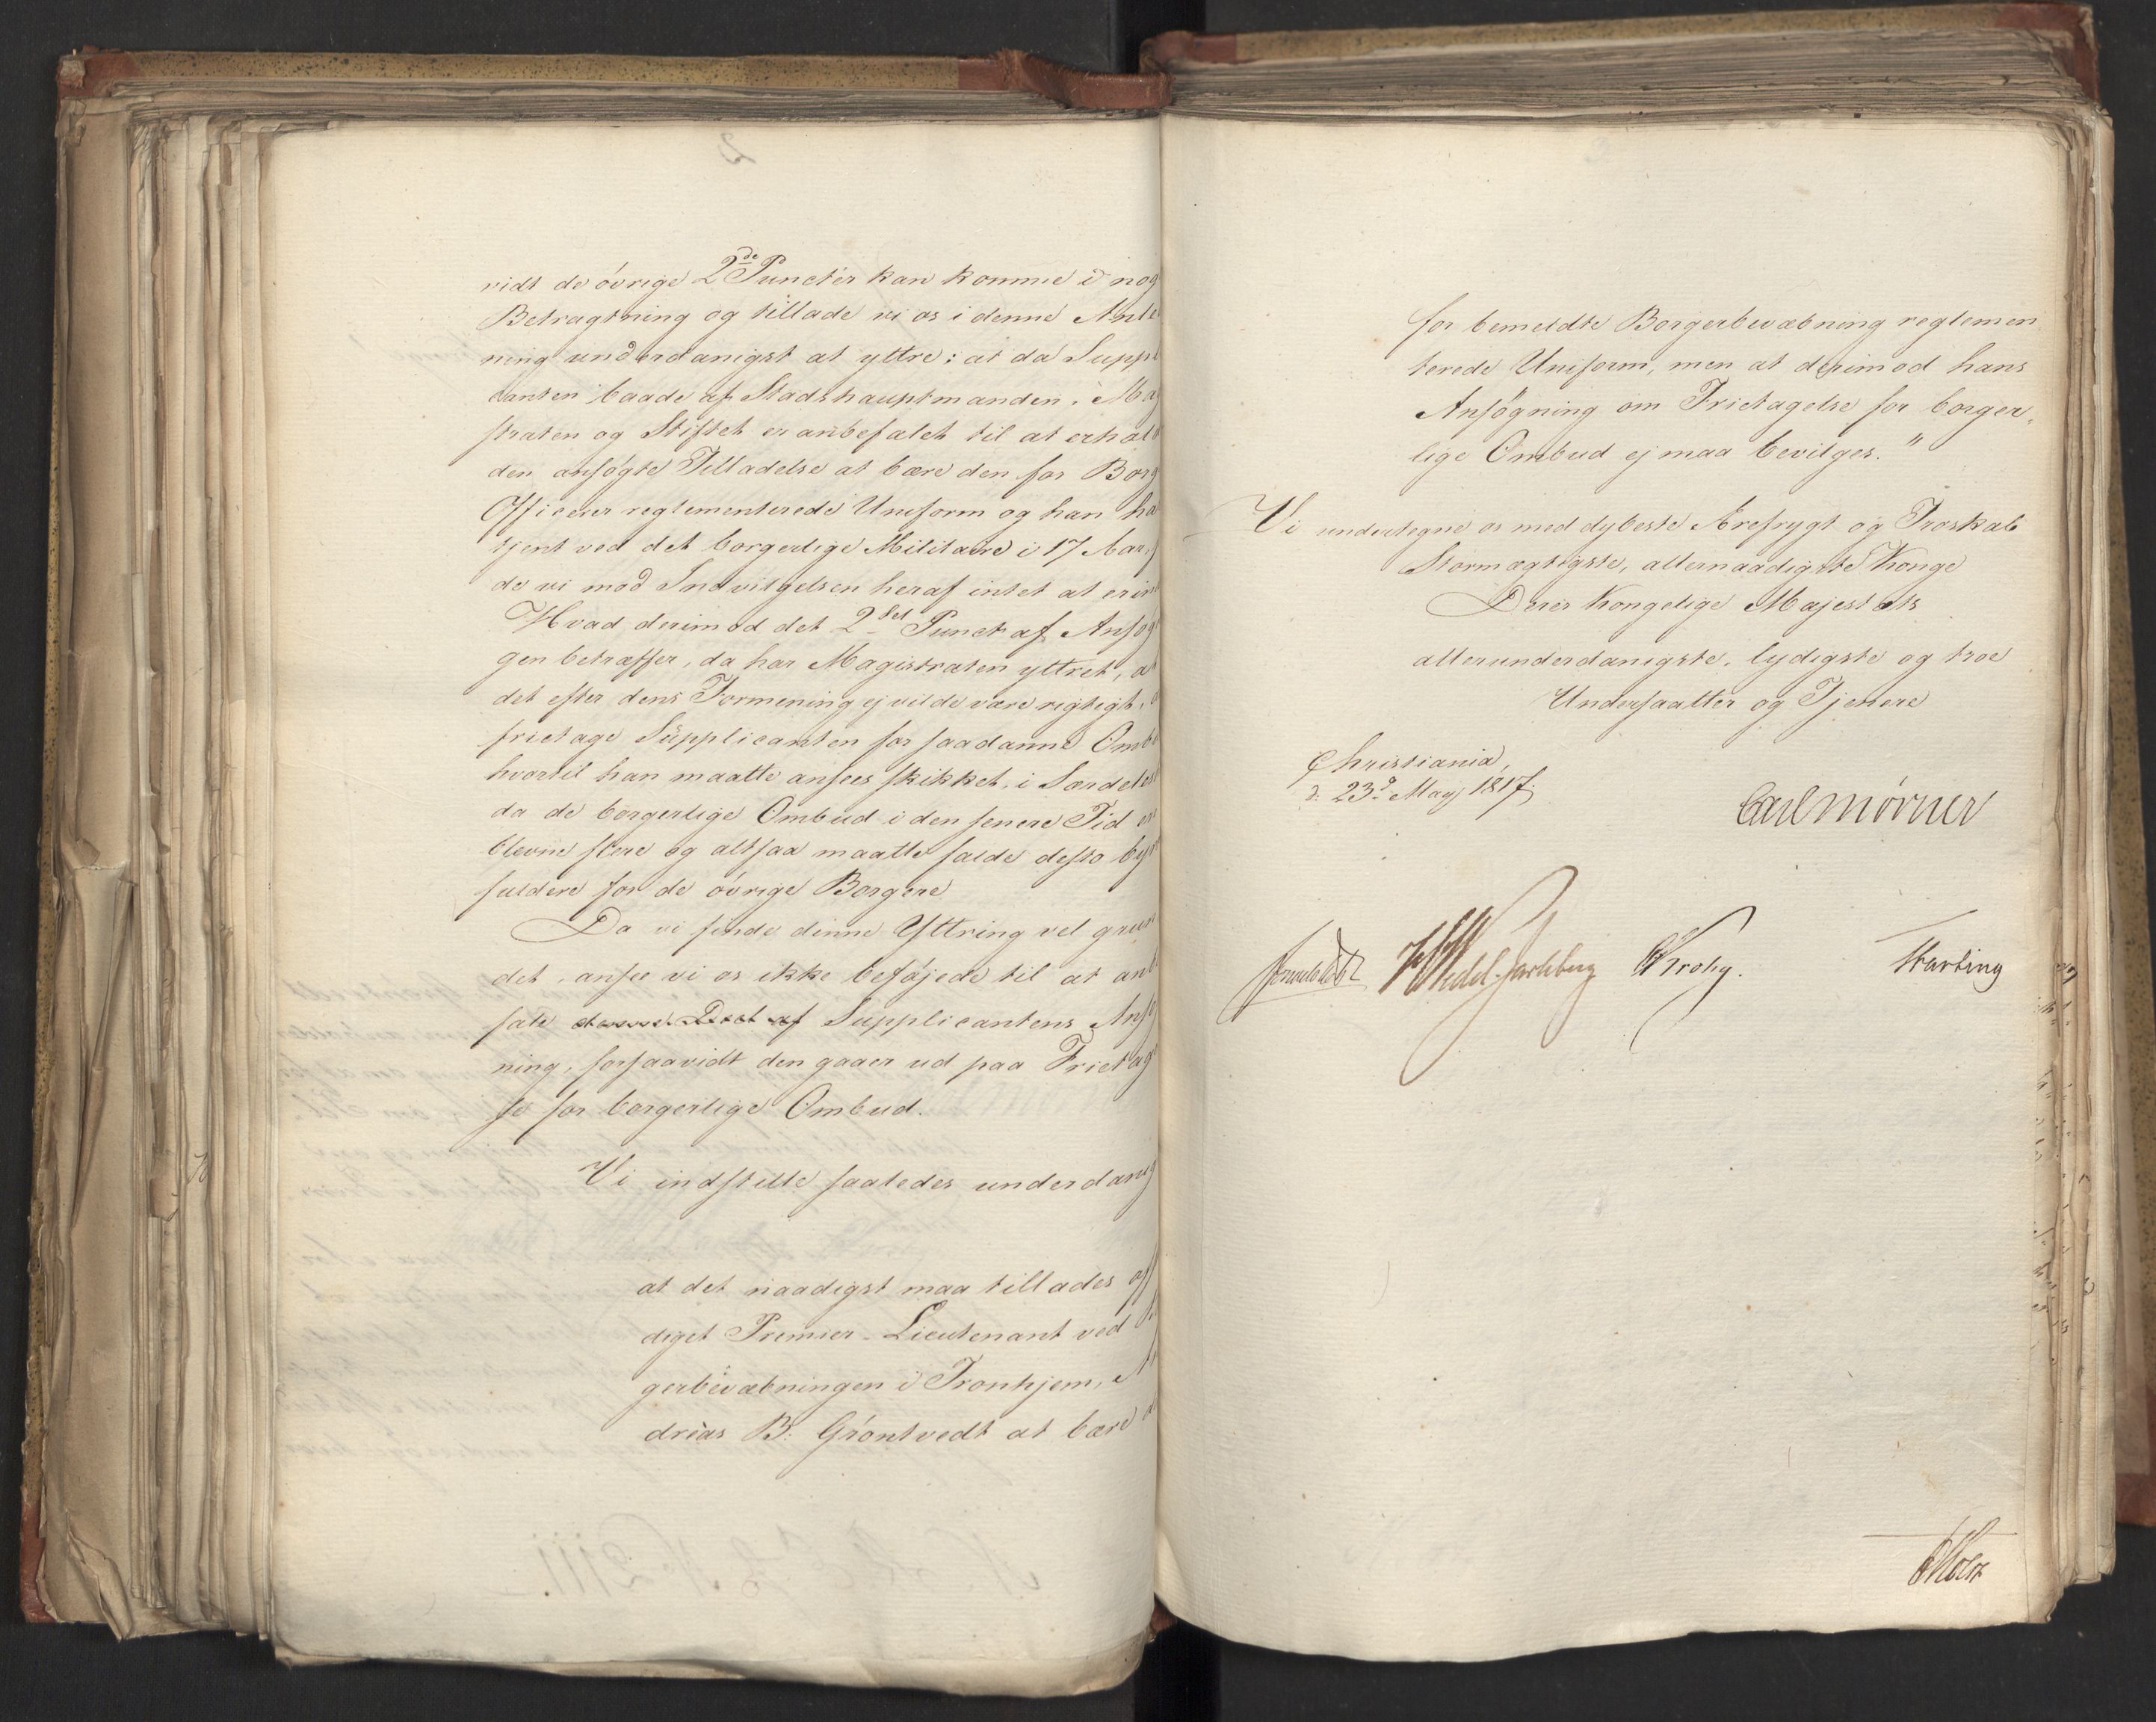 vidt de övrige 2de Puncter kan komme i nog
Betragtning og tillade vi os i denne Anle
ning underdanigst at yttre: at da Suppl
canten baade af Stadshauptmanden, Mag
straten og Stiftet er anbefalet til at erhol
den ansøgte Tilladelse at bære den for Borg
Officerer reglementerede Uniform og han ha
tjent ved det borgerlige Militaire i 17 Aar,
de vi mod Indvilgelsen heraf intet at erin
Hvad derimod det 2det Punct af Ansøg
gen betræffer, da har Magistraten yttret, at
det efter dens Formening ej vilde være rigtigt,
fritage Supplicanten for saadanne Omb
hvortil han maatte ansees skikket, i Særdeles
da de borgerlige Ombud i den senere Tid er
blevne flere og altsaa maatte falde desto byr
fuldere for de övrige Borgere
Da vi finde denne Yttring vel grun
det, ansee vi os ikke beføjede til at anb
fale denne Deel af Supplicantens Ansøg
ning, forsaavidt den gaaer ud paa Frietag
se for borgerlige Ombud.
Vi indstille saaledes underdanig
at det naadigst maa tillades af
diget Premier-Lieutenant ved
gerbevæbningen i Tronhjem, A
dreas B: Grøntvedt at bære d
for bemeldte Borgerbevæbning reglemen
terede Uniform, men at derimod hans
Ansøgning om Frietagelse for borger„
lige Ombud ej maa bevilges."
Vi undertegne os med dybeste Ærefrygt og Troskab
Stormægtigste, allernaadigste Konge
Deres Kongelige Majestæts
allerunderdanigste, lydigste og troe
Undersaatter og Tjenere
Christiania,
d: 23d May 1817.
Carl Mörner
Sommerhielm HWedel-Jarlsberg CKrohg. Harbing
Holst